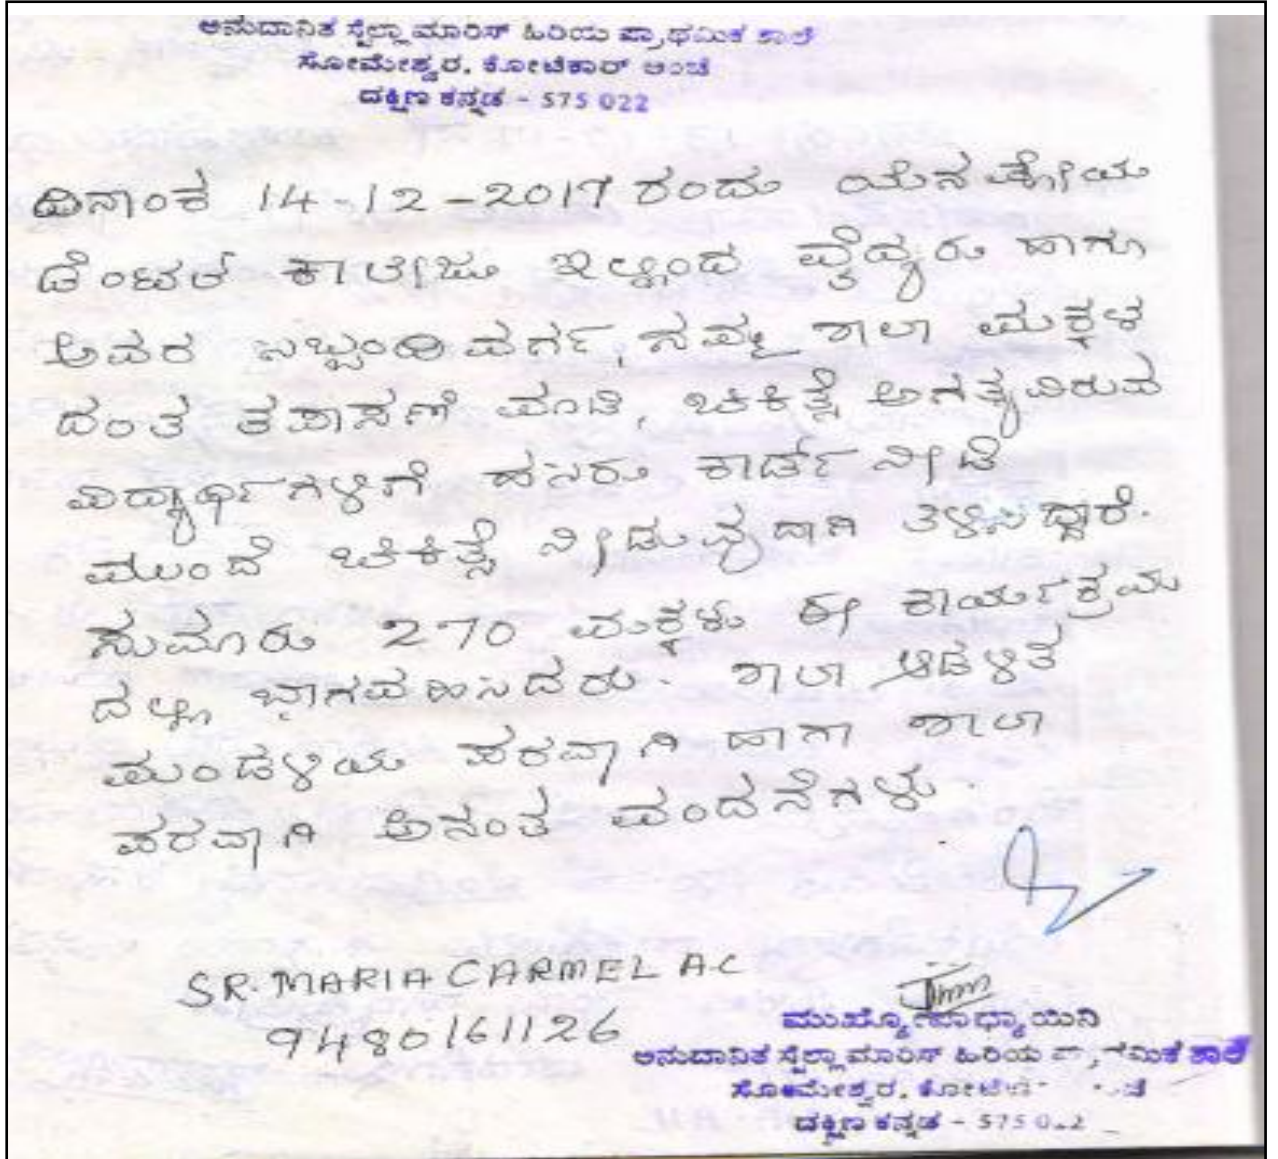 ಅನುದಾನಿತ ಸ್ಟೆಲ್ಲಾ ಮಾರಿಸ್ ಹಿರಿಯ ಪ್ರಾಥಮಿಕ ಶಾಲೆ
ಸೋಮೇಶ್ವರ, ಕೋಟೆಕಾರ್ ಅಂಚೆ
ದಕ್ಷಿಣ ಕನ್ನಡ - 575 022
ದಿನಾಂಕ 14-12-2017 ರಂದು ಯೆನಪೋಯ
ಡೆಂಟಲ್ ಕಾಲೇಜು ಇಲ್ಲಿಂದ ವೈದ್ಯರು ಹಾಗೂ
ಅವರ ಸಿಬ್ಬಂದಿ ವರ್ಗ, ನಮ್ಮ ಶಾಲಾ ಮಕ್ಕಳ
ದಂತ ತಪಾಸಣೆ ಮಾಡಿ, ಚಿಕಿತ್ಸೆ ಅಗತ್ಯವಿರುವ
ವಿದ್ಯಾರ್ಥಿಗಳಿಗೆ ಹಸಿರು ಕಾರ್ಡ್ ನೀಡಿ
ಮುಂದೆ ಚಿಕಿತ್ಸೆ ನೀಡುವುದಾಗಿ ತಿಳಿಸಿದ್ದಾರೆ.
ಸುಮಾರು 270 ಮಕ್ಕಳು ಈ ಕಾರ್ಯಕ್ರಮ
ದಲ್ಲಿ ಭಾಗವಹಿಸಿದರು. ಶಾಲಾ ಆಡಳಿತ
ಮಂಡಳಿಯ ಪರವಾಗಿ ಹಾಗೂ ಶಾಲಾ
ಪರವಾಗಿ ಅನಂತ ವಂದನೆಗಳು.
SR. MARIA CARMEL A.C
9480161126
ಮುಖ್ಯೋಪಾಧ್ಯಾಯಿನಿ
ಅನುದಾನಿತ ಸ್ಟೆಲ್ಲಾ ಮಾರಿಸ್ ಹಿರಿಯ ಪ್ರಾಥಮಿಕ ಶಾಲೆ
ಸೋಮೇಶ್ವರ,
ದಕ್ಷಿಣ ಕನ್ನಡ -